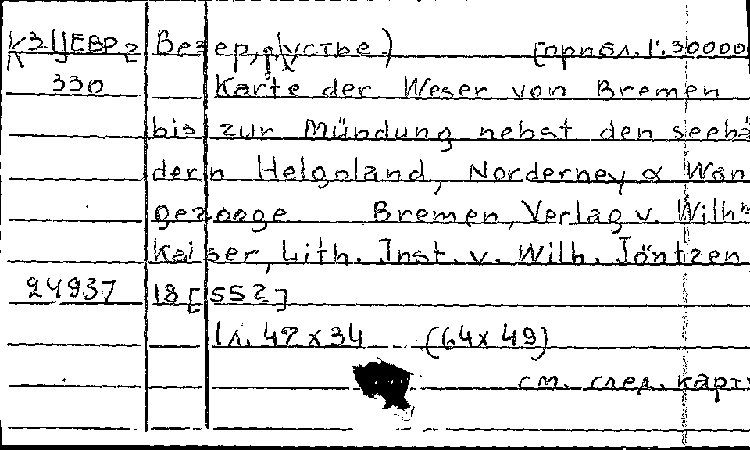 К3ЦЕВР2 Везер, устье) [прибл. 1:300000
330 Karte der Weser von Bremen
bis zur Mündung nebst den seebä
dern Helgoland, Norderney & Wan
gerooge Bremen, Verlag v. Wilh.
Kaiser, Lith. Inst. v. Wilh. Jöntzen
24937 18[55?]
1 л. 47 x 34 (64 x 49)
см. след. карт